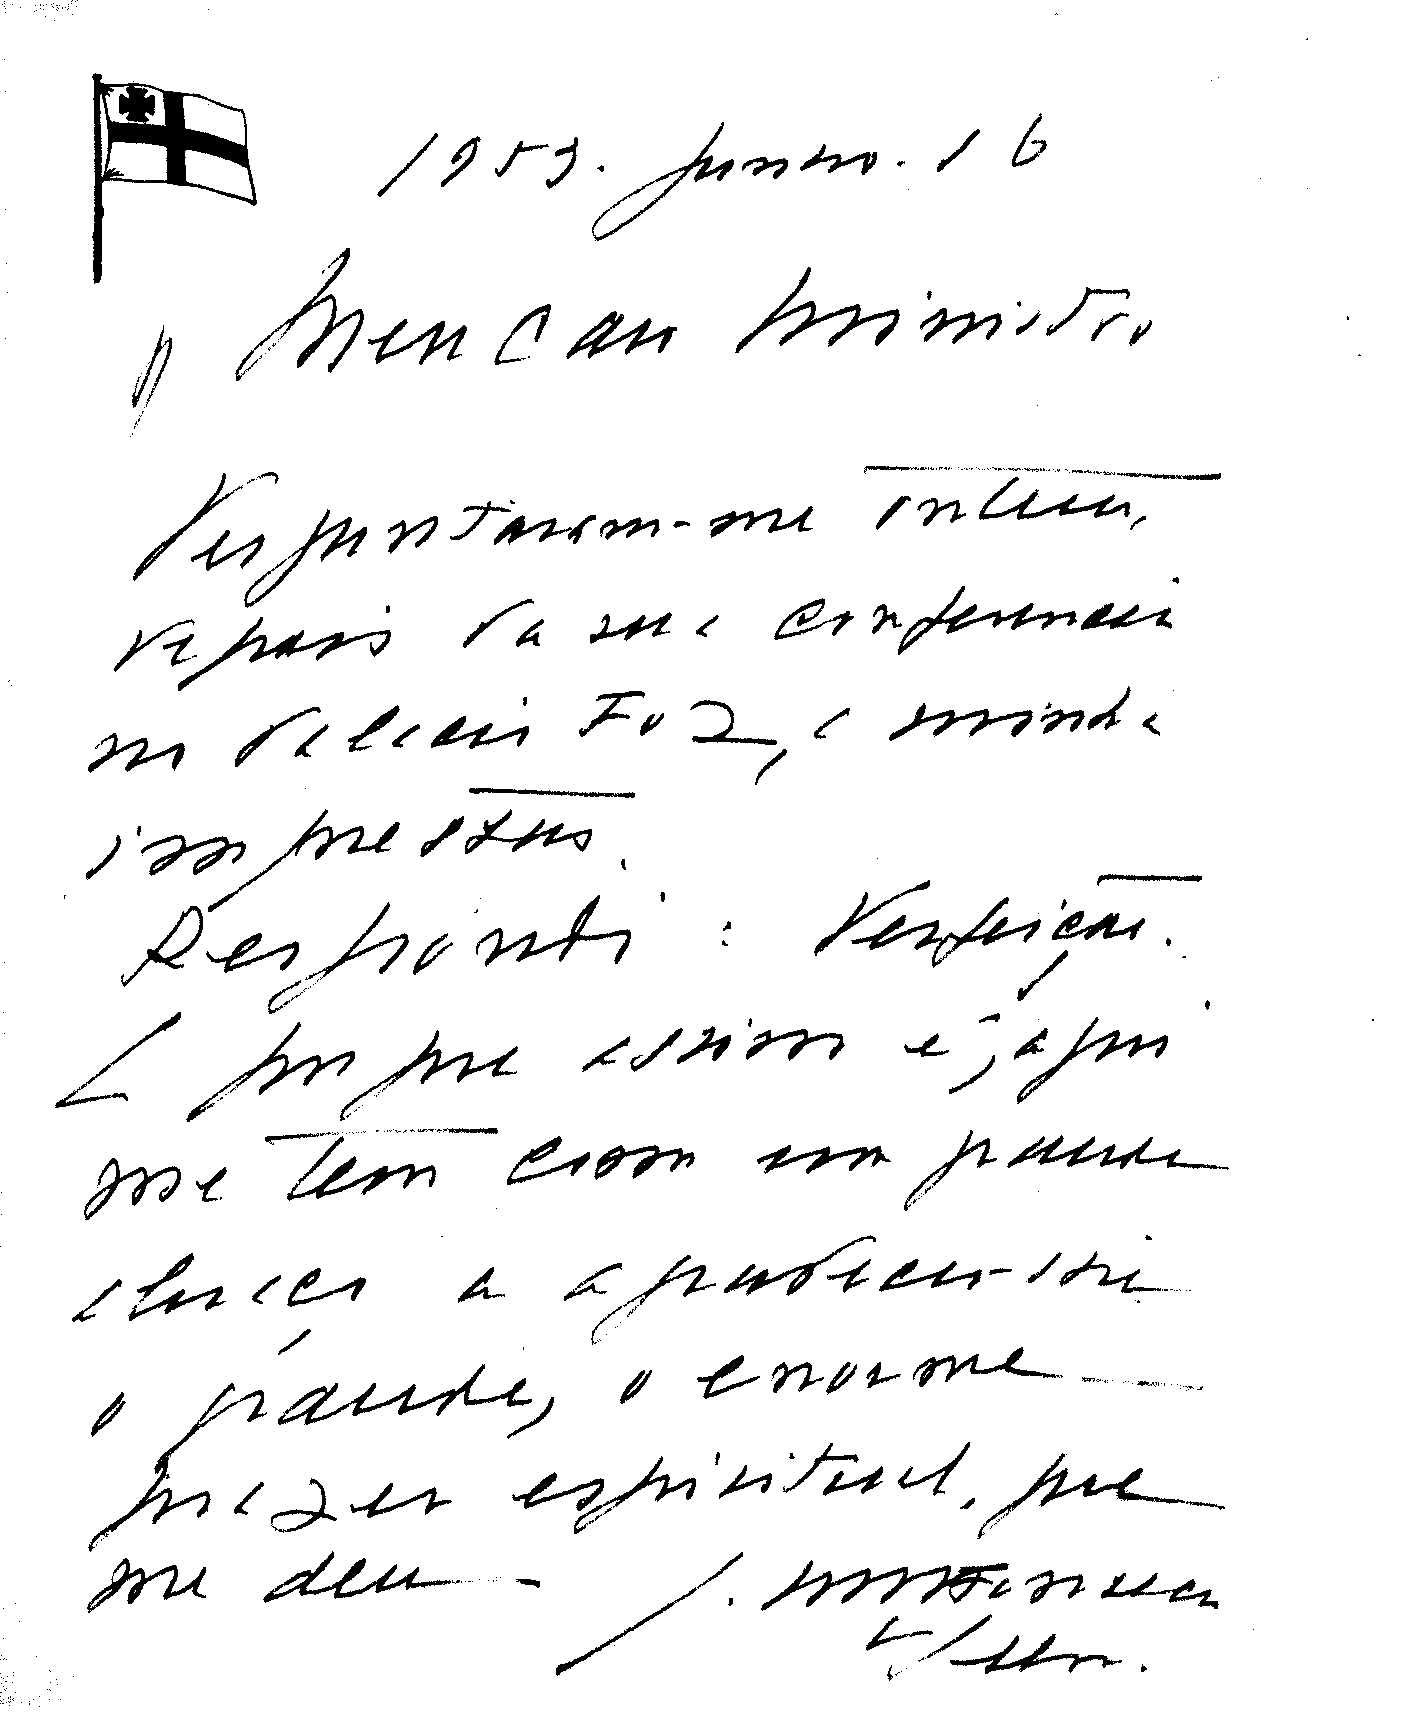 1953. Junho. 16
Meu caro Ministro
Perguntaram-me ontem,
depois da sua conferencia
no Palacio Foz, a minha
impressão.
Respondi: Perfeição.
E porque assim é, aqui
me tem com um grande
abraço a agradecer-lhe
o grande, o enorme
prazer espiritual, que
me deu —